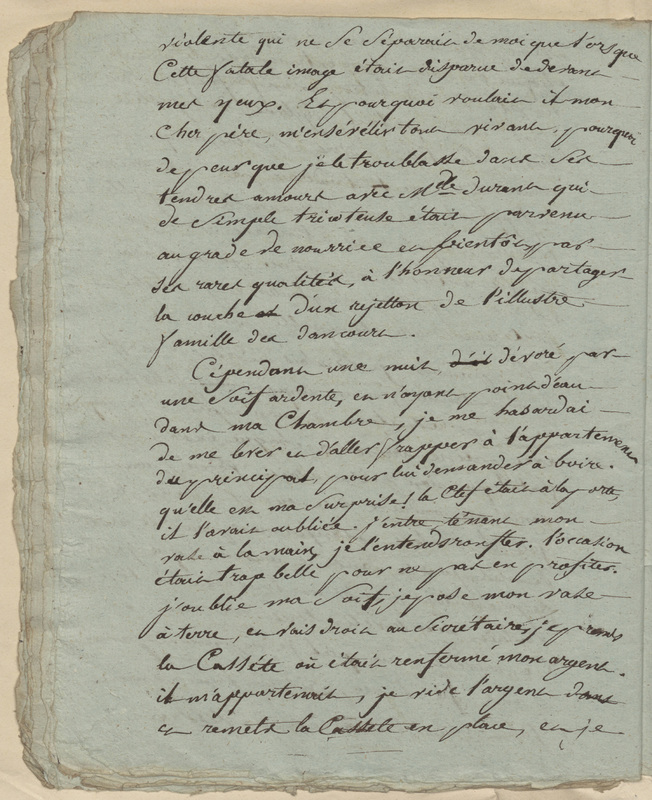 violente qui ne se séparait de moi que lorsque
Cette fatale image était disparue de devant
mes yeux. Et pourquoi voulait il mon
Cher père, m'ensévélir tout vivant, pourquoi
de peur que je le troublasse dans ses
tendres amours avec Mdle durant qui
de simple tricoteuse était parvenu
au grade de nourrice et bientôt par
ses rares qualités, à l'honneur de partager
la couche et d'un rejetton de l'illustre
famille des dancourt.
Cépendant une nuit, dévoré par
une soif ardente, et n'ayant point d'eau
dans ma Chambre, je me hasardai
de me lever et d'aller frapper à l'appartement
du principal, pour lui demander à boire.
qu'elle est ma surprise! la Clef était à la porte,
il l'avait oubliée. j'entre ténant mon
vase à la main, je l'entends ronfler. l'occasion
était trop belle pour ne pas en profiter.
j'oublie ma soif, je pose mon vase
à terre, et vais droit au Sécrétaire, je prends
la Casséte où était renfermé mon argent.
il m'appartenait, je vide l'argent dans
et remets la Cassete en place, et je